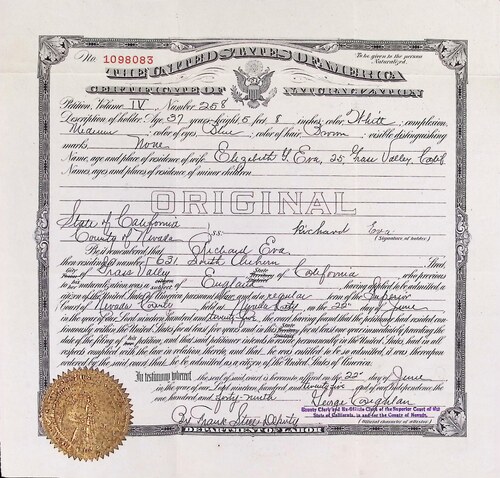 No. 1098083
To be given to the person Naturalized.
THE UNITED STATES OF AMERICA
CERTIFICATE OF NATURALIZATION
Petition, Volume IV Number 258
Description of holder: Age, 37 years; height, 5 feet, 8 inches; color, White; complexion,
Medium; color of eyes, Blue; color of hair, Brown; visible distinguishing
marks, None
Name, age and place of residence of wife, Elizabeth Y. Eva, 25, Grass Valley, Calif
Names, ages and places of residence of minor children,
ORIGINAL
State of California
County of Nevada s.s.
Richard Eva
(Signature of holder)
Be it remembered, that Richard Eva
then residing at number 631 South Auburn Street,
of Grass Valley of California, who previous
to his naturalization was a of England, having applied to be admitted a
citizen of the United States of America, pursuant to law, and at a regular term of the Superior
Court of Nevada County held at Nevada City on the 22" day of June
in the year of our Lord nineteen hundred and twenty five, the court having found that the petitioner had resided con-
tinuously within the United States for at least five years and in this for at least one year immediately preceding the
date of the filing of petition, and that said petitioner intends to reside permanently in the United States, had in all
respects complied with the law in relation thereto, and that he was entitled to be so admitted, it was thereupon
ordered by the said court that he be admitted as a citizen of the United States of America.
In testimony whereof the seal of said court is hereunto affixed on the 22" day of June
in the year of our Lord nineteen hundred and twenty five and of our Independence the
one hundred and forty-ninth
George Coughlan
County Clerk and Ex-Officio Clerk of the Superior Court of the
State of California, in and for the County of Nevada.
(Official character of attestor.)
Deputy
DEPARTMENT OF LABOR